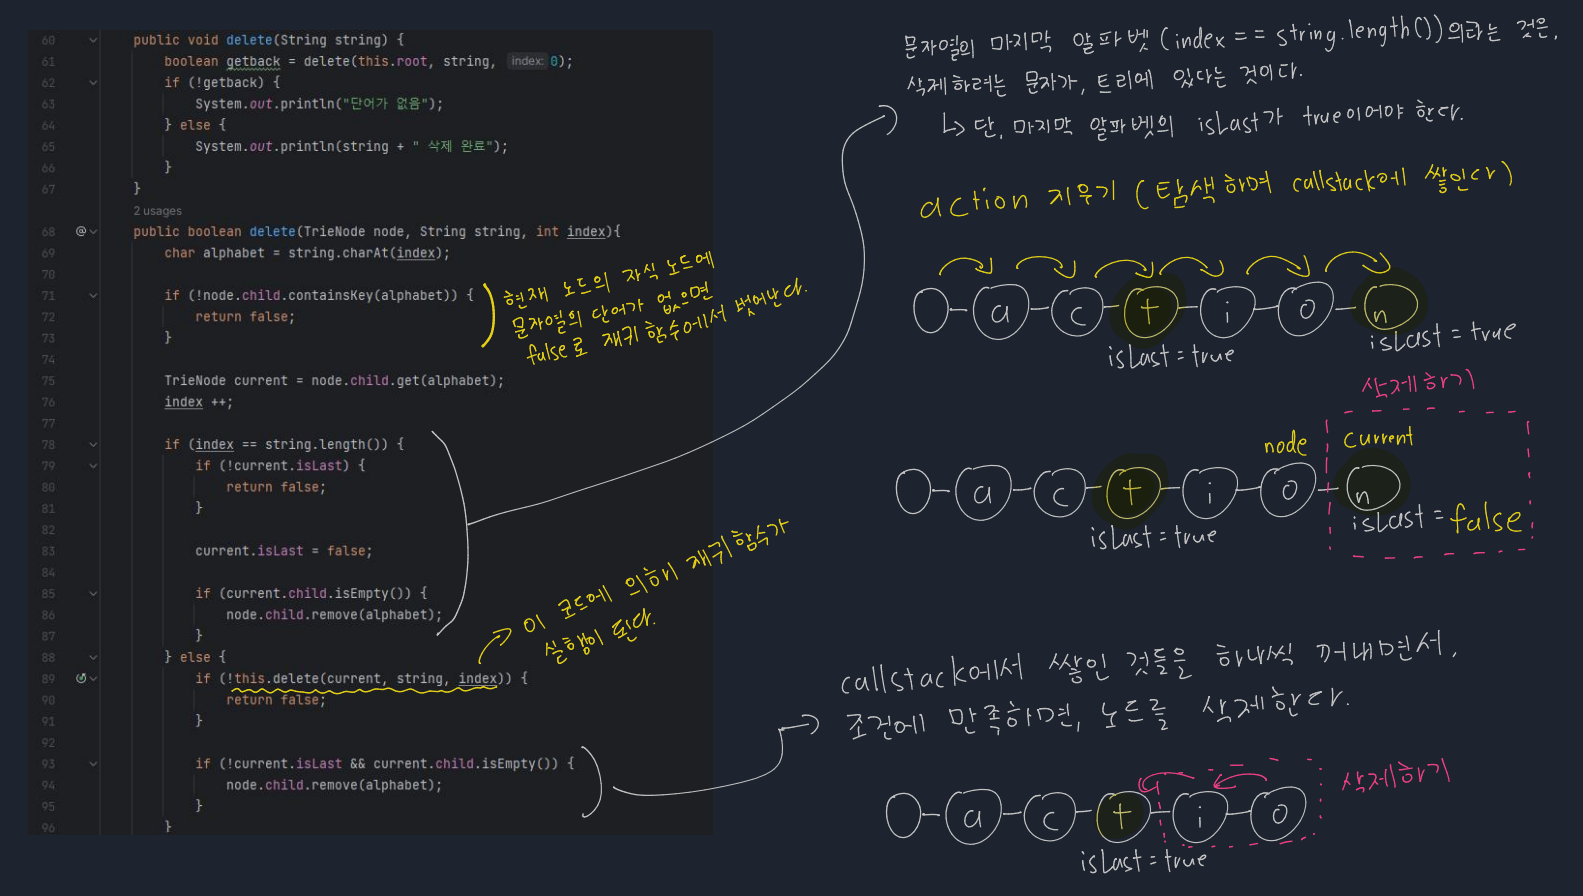 60 public void delete(String string) {
61 boolean getback = delete(this.root, string, index: 0);
62 if (!getback) {
63 System.out.println("단어가 없음");
64 } else {
65 System.out.println(string + " 삭제 완료");
66 }
67 }
2 usages
68 @ public boolean delete(TrieNode node, String string, int index){
69 char alphabet = string.charAt(index);
70
71 if (!node.child.containsKey(alphabet)) {
72 return false;
73 }
74
75 TrieNode current = node.child.get(alphabet);
76 index ++;
77
78 if (index == string.length()) {
79 if (!current.isLast) {
80 return false;
81 }
82
83 current.isLast = false;
84
85 if (current.child.isEmpty()) {
86 node.child.remove(alphabet);
87 }
88 } else {
89 if (!this.delete(current, string, index)) {
90 return false;
91 }
92
93 if (!current.isLast && current.child.isEmpty()) {
94 node.child.remove(alphabet);
95 }
96 }
현재 노드의 자식 노드에
문자열의 단어가 없으면
false로 재귀 함수에서 벗어난다.
이 코드에 의해 재귀함수가
실행이 된다.
문자열의 마지막 알파벳 (index == string.length())의라는 것은,
삭제하려는 문자가, 트리에 있다는 것이다.
↳ 단, 마지막 알파벳의 isLast가 true이어야 한다.
action 지우기 (탐색하며 callstack에 쌓인다)
a c t i o n
isLast = true
isLast = true
삭제하기
node current
a c t i o n
isLast = true
isLast = false
callstack에서 쌓인 것들을 하나씩 꺼내면서,
조건에 만족하면, 노드를 삭제한다.
삭제하기
a c t i o
isLast = true